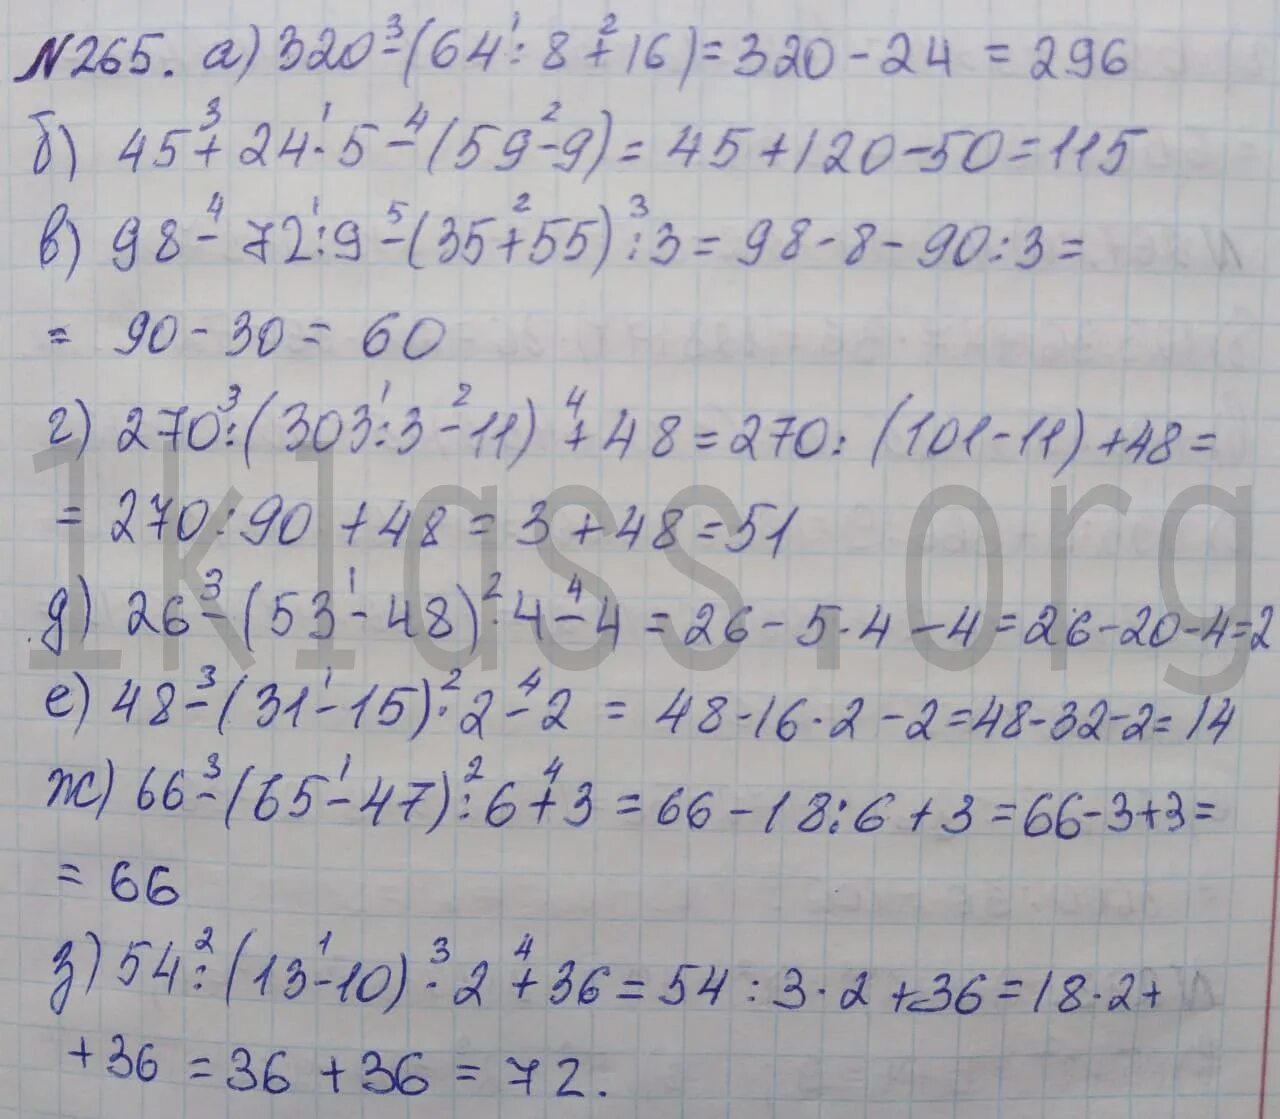 №265. а) 320 - (64 : 8 + 16) = 320 - 24 = 296
б) 45 + 24 · 5 - (59 - 9) = 45 + 120 - 50 = 115
в) 98 - 72 : 9 - (35 + 55) : 3 = 98 - 8 - 90 : 3 =
= 90 - 30 = 60
г) 270 : (303 : 3 - 11) + 48 = 270 : (101 - 11) + 48 =
= 270 : 90 + 48 = 3 + 48 = 51
д) 26 - (53 - 48) · 4 - 4 = 26 - 5 · 4 - 4 = 26 - 20 - 4 = 2
е) 48 - (31 - 15) · 2 - 2 = 48 - 16 · 2 - 2 = 48 - 32 - 2 = 14
ж) 66 - (65 - 47) : 6 + 3 = 66 - 18 : 6 + 3 = 66 - 3 + 3 =
= 66
з) 54 : (13 - 10) · 2 + 36 = 54 : 3 · 2 + 36 = 18 · 2 +
+ 36 = 36 + 36 = 72.
1klass.org